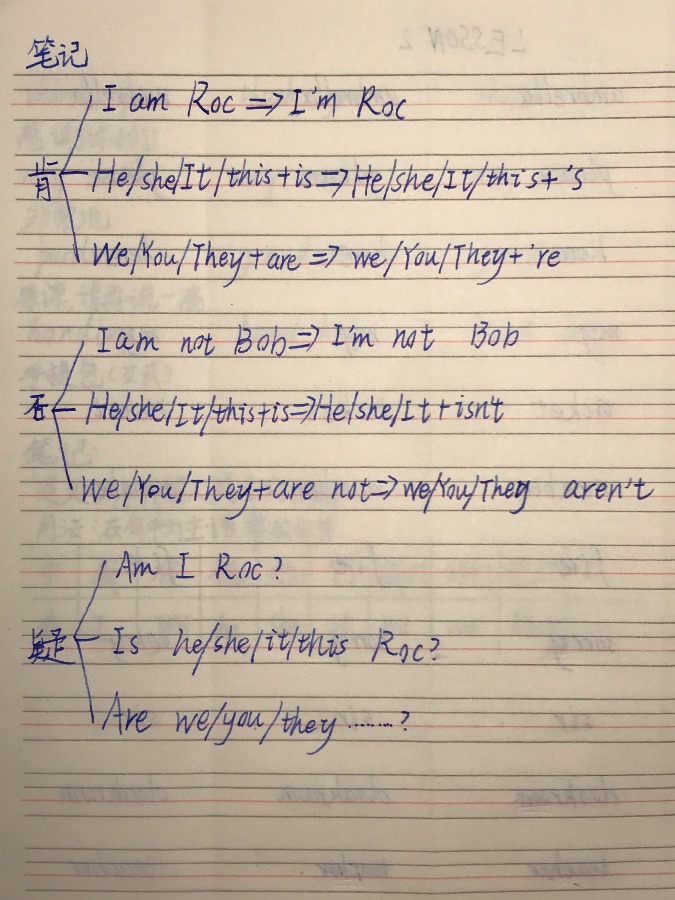 笔记
I am Roc => I'm Roc
肯 He/she/It/this+is=>He/she/It/this+'s
We/You/They+are => we/You/They+'re
I am not Bob=> I'm not Bob
否 He/she/It/this+is=>He/she/It+isn't
We/You/They+are not=>we/You/They aren't
Am I Roc?
疑 Is he/she/it/this Roc?
Are we/you/they ......?